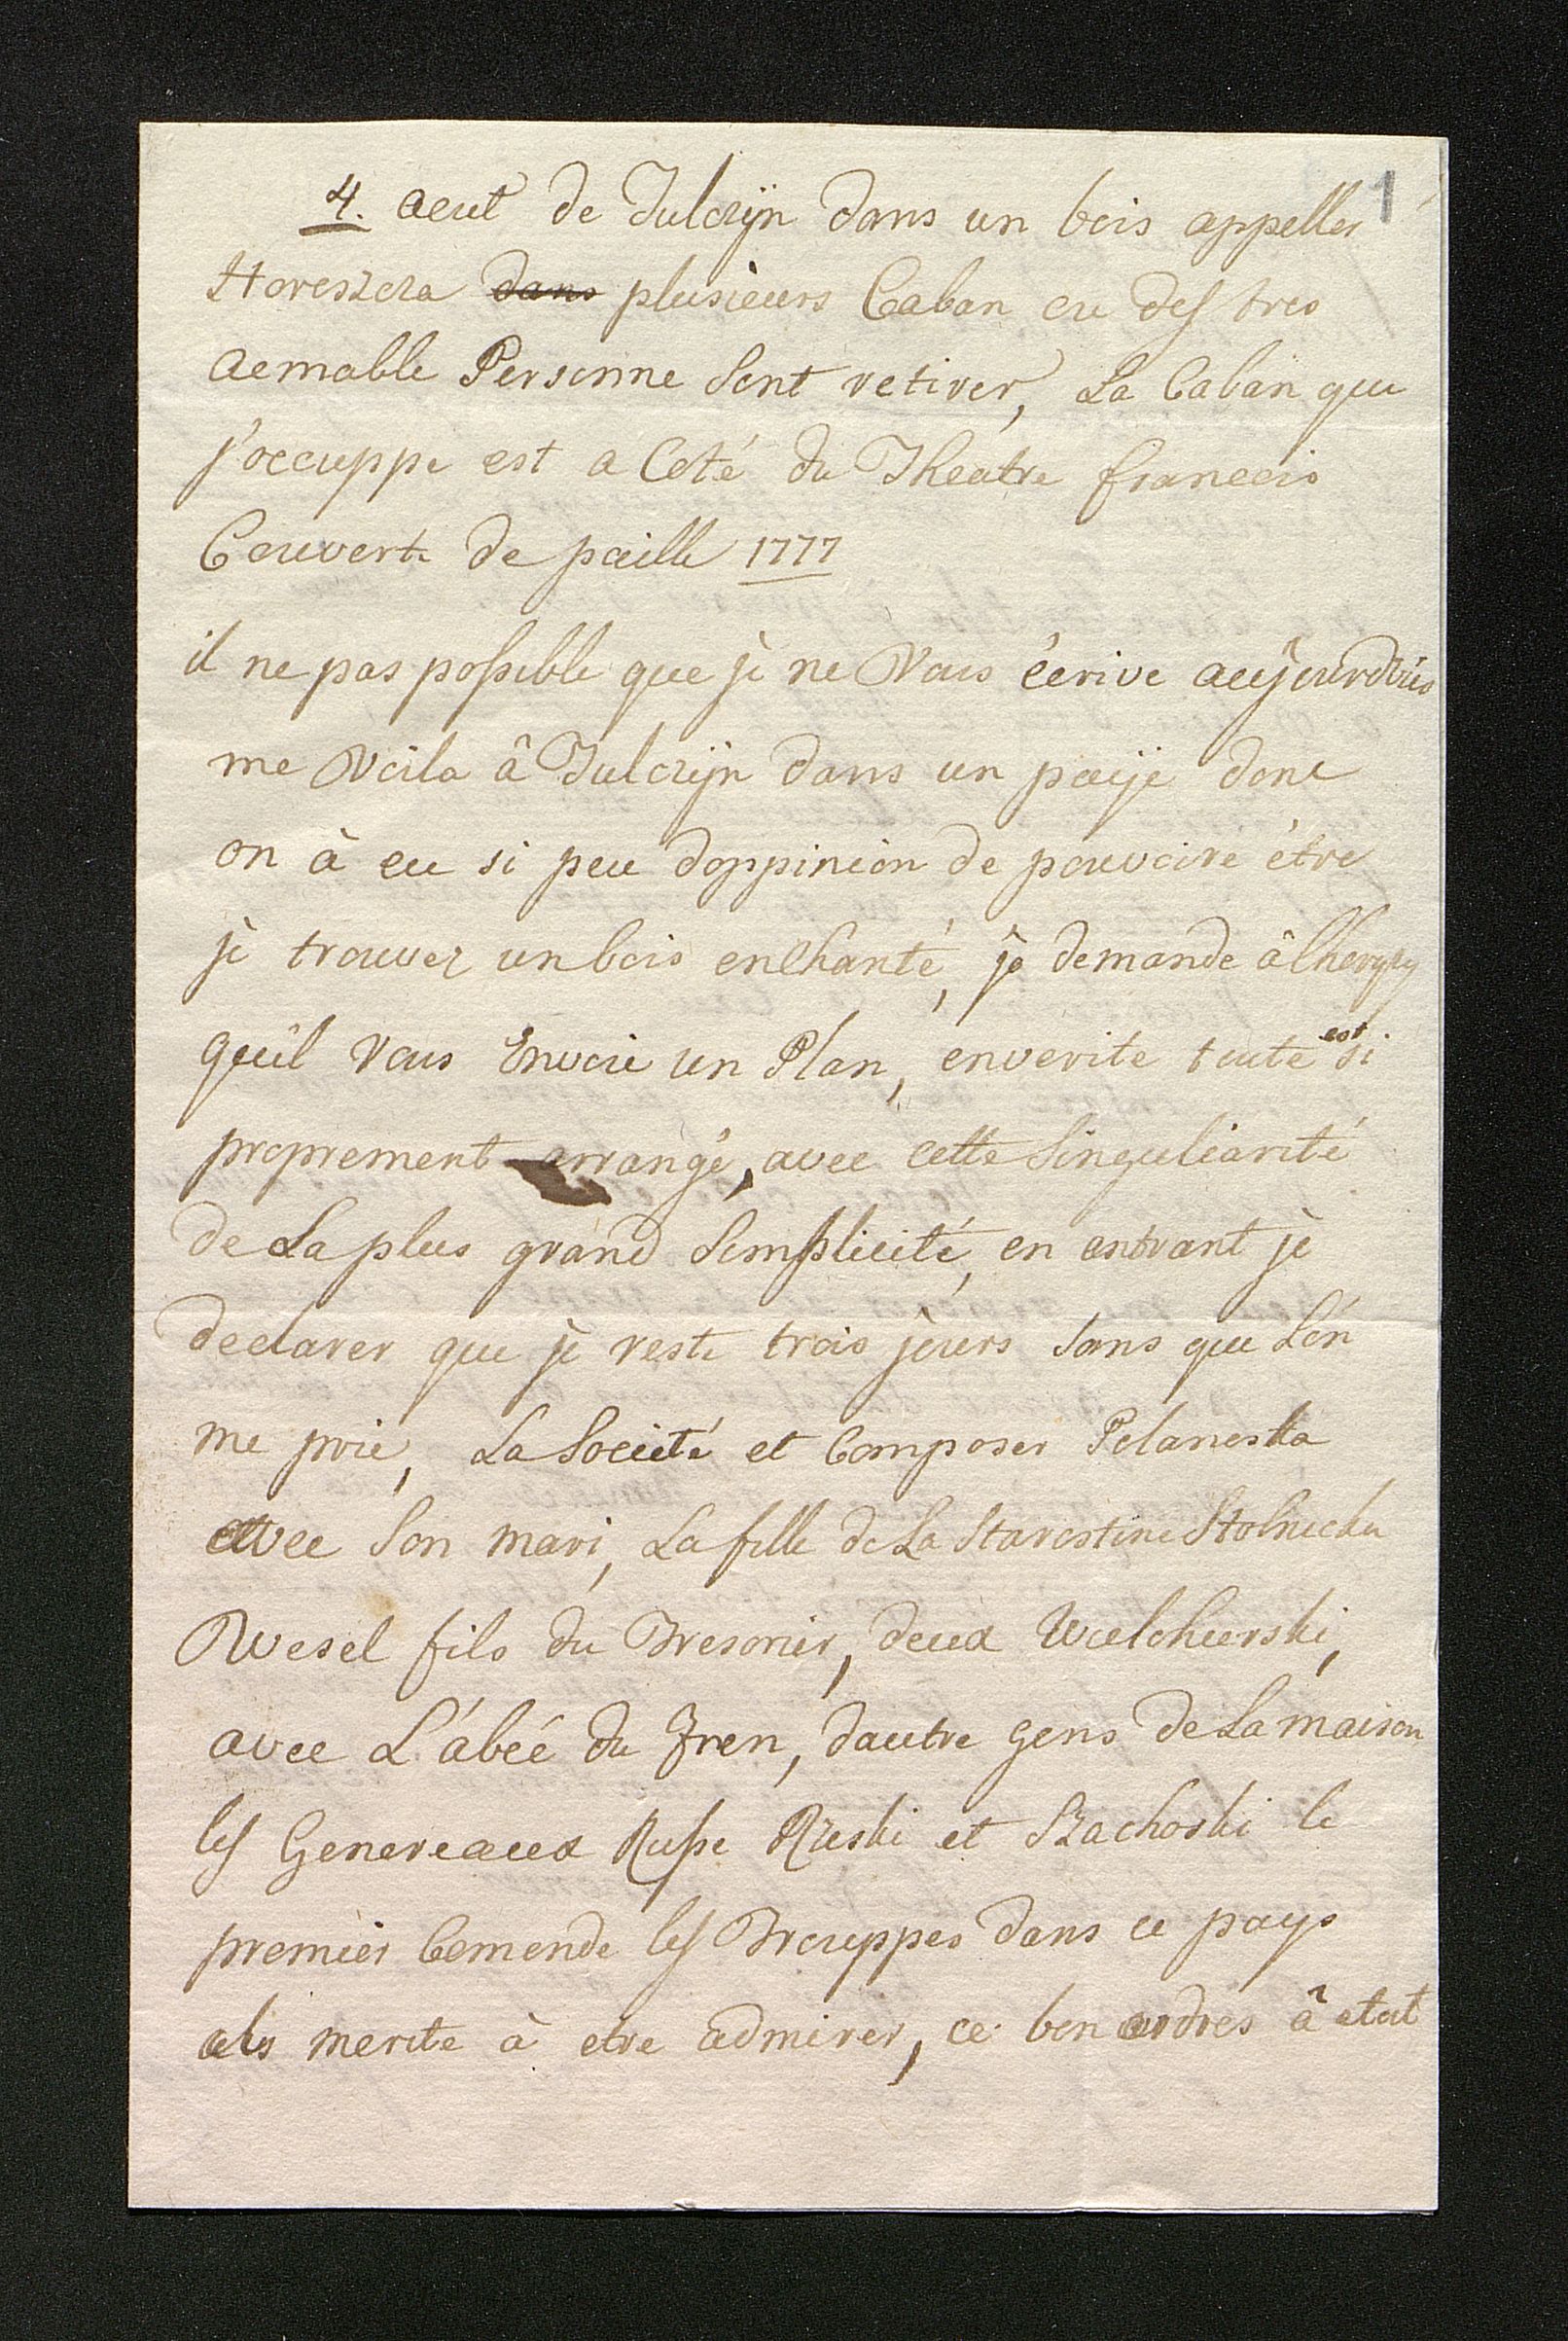 1
4. aout de Tulczÿn dans un bois appeller
Horeszcza dans plusieurs Caban ou des tres
aemable Personne sont retirer, La Caban que
j'occuppe est a Coté du Theatre francois
Couverte de paille 1777
il ne pas possible que je ne Vous écrive aujourdhuis
me Voila â Tulczÿn dans un païje donc
on à eu si peu doppinion de pouvoire étre
je trouvez un bois enchanté, je demande â
qu'il Vous Envoie un Plan, enverite toute est si
proprement arrangé, avec cette Singuliarité
de La plus grand Semplicité, en entrant je
declarer que je reste trois jours sans que L'on
me prie, La Societé et Composer Polanoska
avec Son mari, La fille de La Starostine Stolnicka
Wesel fils du Tresorier, deux Wielohurski,
avec L'ábéé du Fren, dautre gens de La maison
les Genereaux Russe Rzeski et Szachoski le
premier Comende les Trouppes dans ce pays
els merite à etre admirer, ce bon ordres â etat